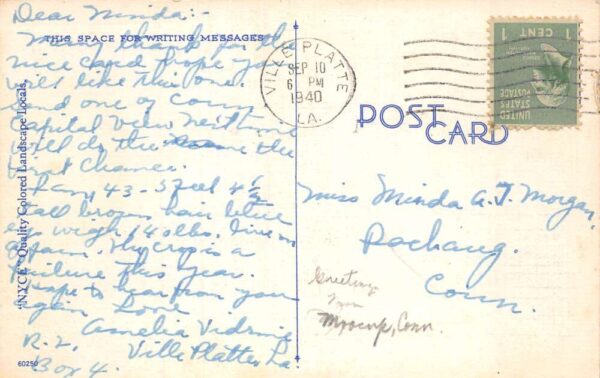 Dear Minda:-
THIS SPACE FOR WRITING MESSAGES
Many thanks for the
nice card hope you
will like this one.
Send one of Conn
Capital View next time
will do the same the
first chance.
I am, 43 - 5 feet 4 1/2
tall brown hair blue
eye weigh 140 lbs. live on
a farm. the crop is a
failure this year.
Hope to hear from you
again Love
Amelia Vidrine
R. 2. Ville Platte, La.
Box 4.
60250
"NYCE" Quality Colored Landscape Locals,
VILLE PLATTE
SEP 10
6 PM
1940
LA.
1 CENT 1
UNITED STATES POSTAGE
POST CARD
Miss Minda A. T. Morgan,
Pachaug.
Conn.
Greetings
from
Moosup, Conn.